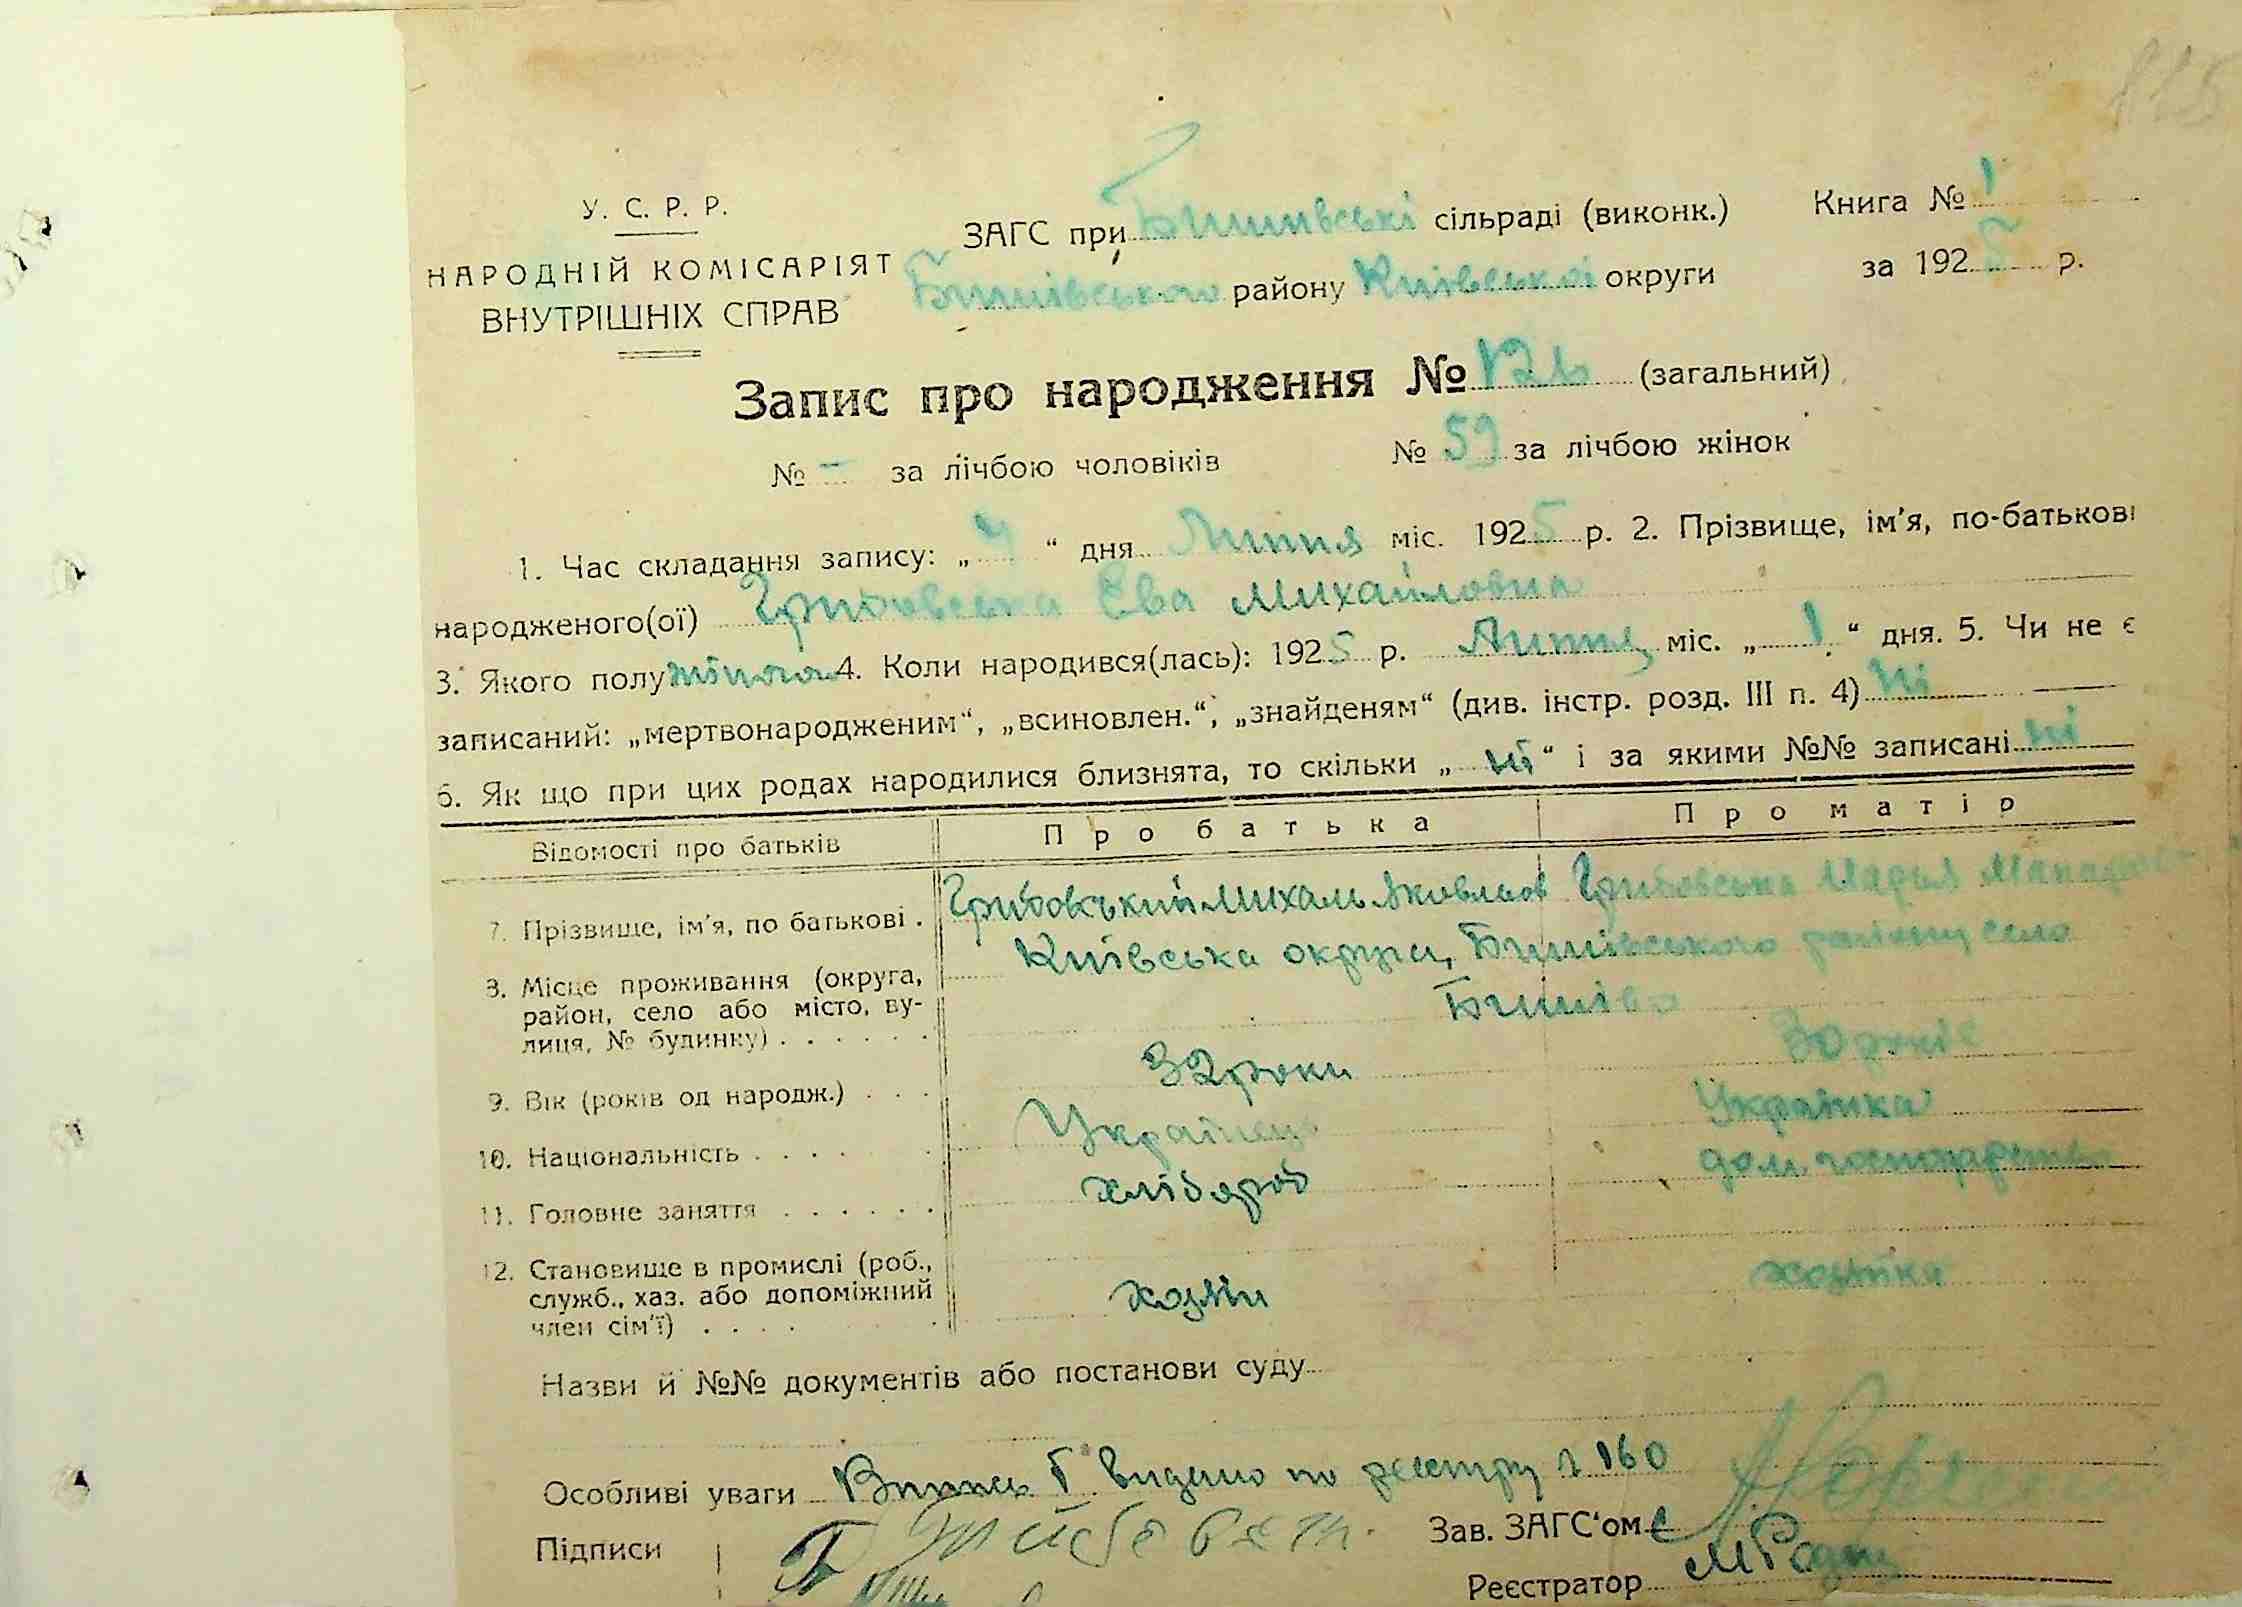 У. С. Р. Р.
НАРОДНІЙ КОМІСАРІЯТ
ВНУТРІШНІХ СПРАВ
ЗАГС при сільраді (виконк.)
Бишівського району Київської округи
Книга № 1
за 1925 р.
Запис про народження № (загальний)
№ – за лічбою чоловіків № 59 за лічбою жінок
1. Час складання запису: „ “ дня Липня міс. 1925 р. 2. Прізвище, ім'я, по-батькові
народженого(ої) Грибовська Ева Михайловна
3. Якого полу жіноча 4. Коли народився(лась): 1925 р. Липня міс. „ 1 “ дня. 5. Чи не є
записаний: „мертвонародженим“, „всиновлен.“, „знайденям“ (див. інстр. розд. III п. 4) ні
6. Як що при цих родах народилися близнята, то скільки „ ні “ і за якими №№ записані ні
Відомості про батьків Про батька Про матір
7. Прізвище, ім'я, по батькові . Грибовський Михаль Яковлев Грибовська Марья
8. Місце проживання (округа, район, село або місто, вулиця, № будинку) . . . . . . Київська округа, Бишівського району село
Бишів
9. Вік (років од народж.) . . . 32 роки 30 років
10. Національність . . . . . Українець Українка
11. Головне заняття . . . . . . хлібороб дом. господарство
12. Становище в промислі (роб., служб., хаз. або допоміжний член сім'ї) . . . . . хозяїн хозяйка
Назви й №№ документів або постанови суду
Особливі уваги Випись видано по реєстру 160
Підписи
Зав. ЗАГС'ом
Реєстратор